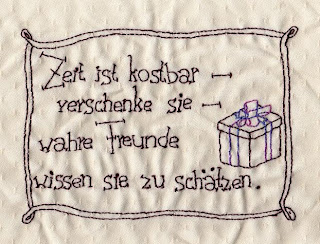 Zeit ist kostbar –
verschenke sie –
wahre Freunde
wissen sie zu schätzen.